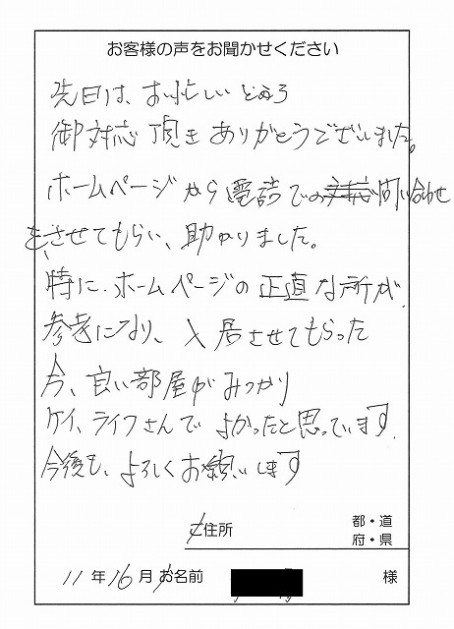 お客様の声をお聞かせください
先日は、お忙しいところ
御対応頂きありがとうございました。
ホームページから電話での問い合わせ
を、させてもらい、助かりました。
時に、ホームページの正直な所が、
参考になり、入居させてもらった
今、良い部屋がみつかり
ケイ、ライフさんでよかったと思っています。
今後も、よろしくお願いします
ご住所 都・道
府・県
11年16月 お名前 様